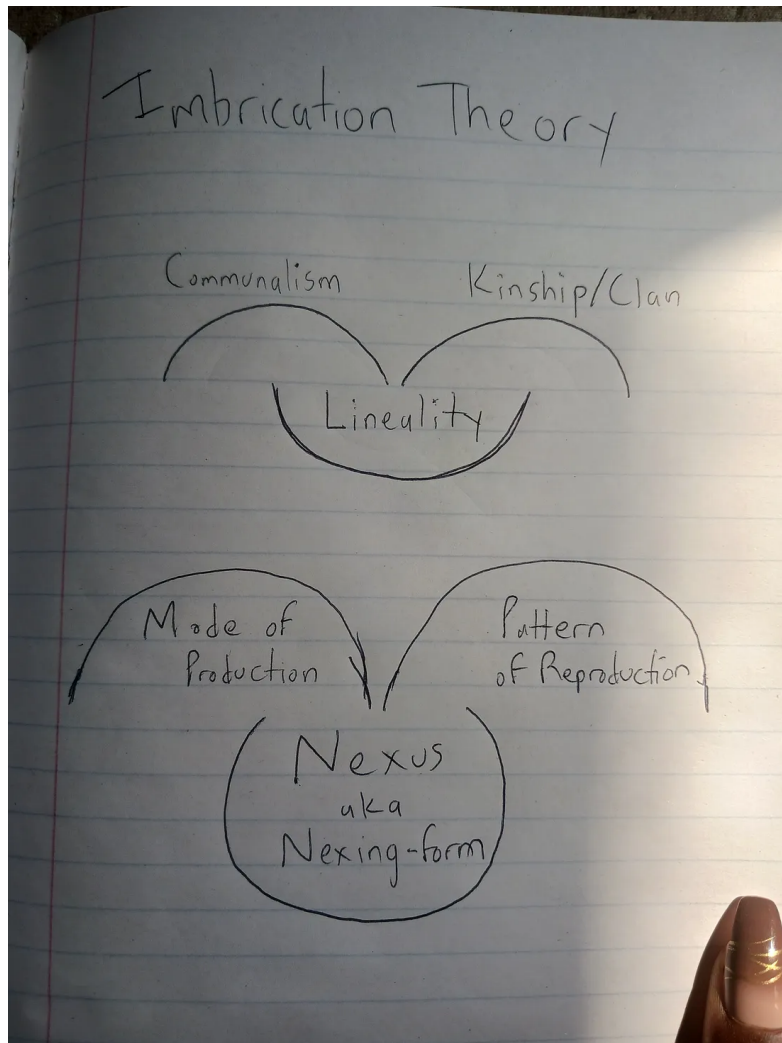 Imbrication Theory
Communalism
Kinship/Clan
Lineality
Mode of
Production
Pattern
of Reproduction
Nexus
aka
Nexing-form